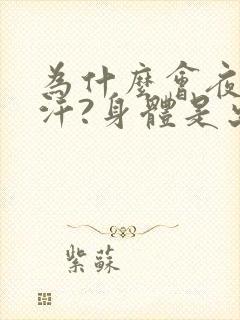 為什麼會夜
汗?身體是出
紫蘇